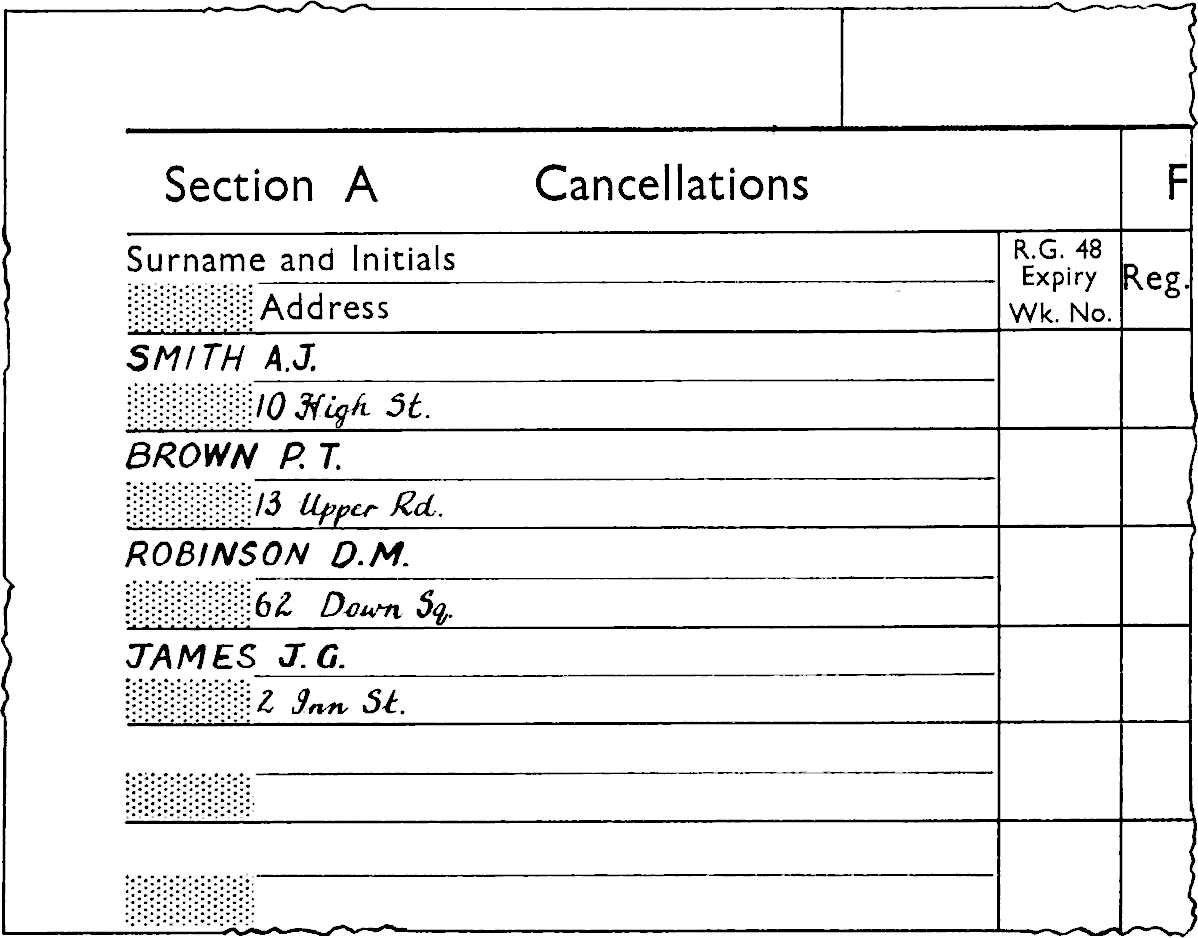 Section A Cancellations F
Surname and Initials
Address
R.G. 48
Expiry
Wk. No.
Reg.
SMITH A.J.
10 High St.
BROWN P. T.
13 Upper Rd.
ROBINSON D.M.
62 Down Sq.
JAMES J. G.
2 Inn St.